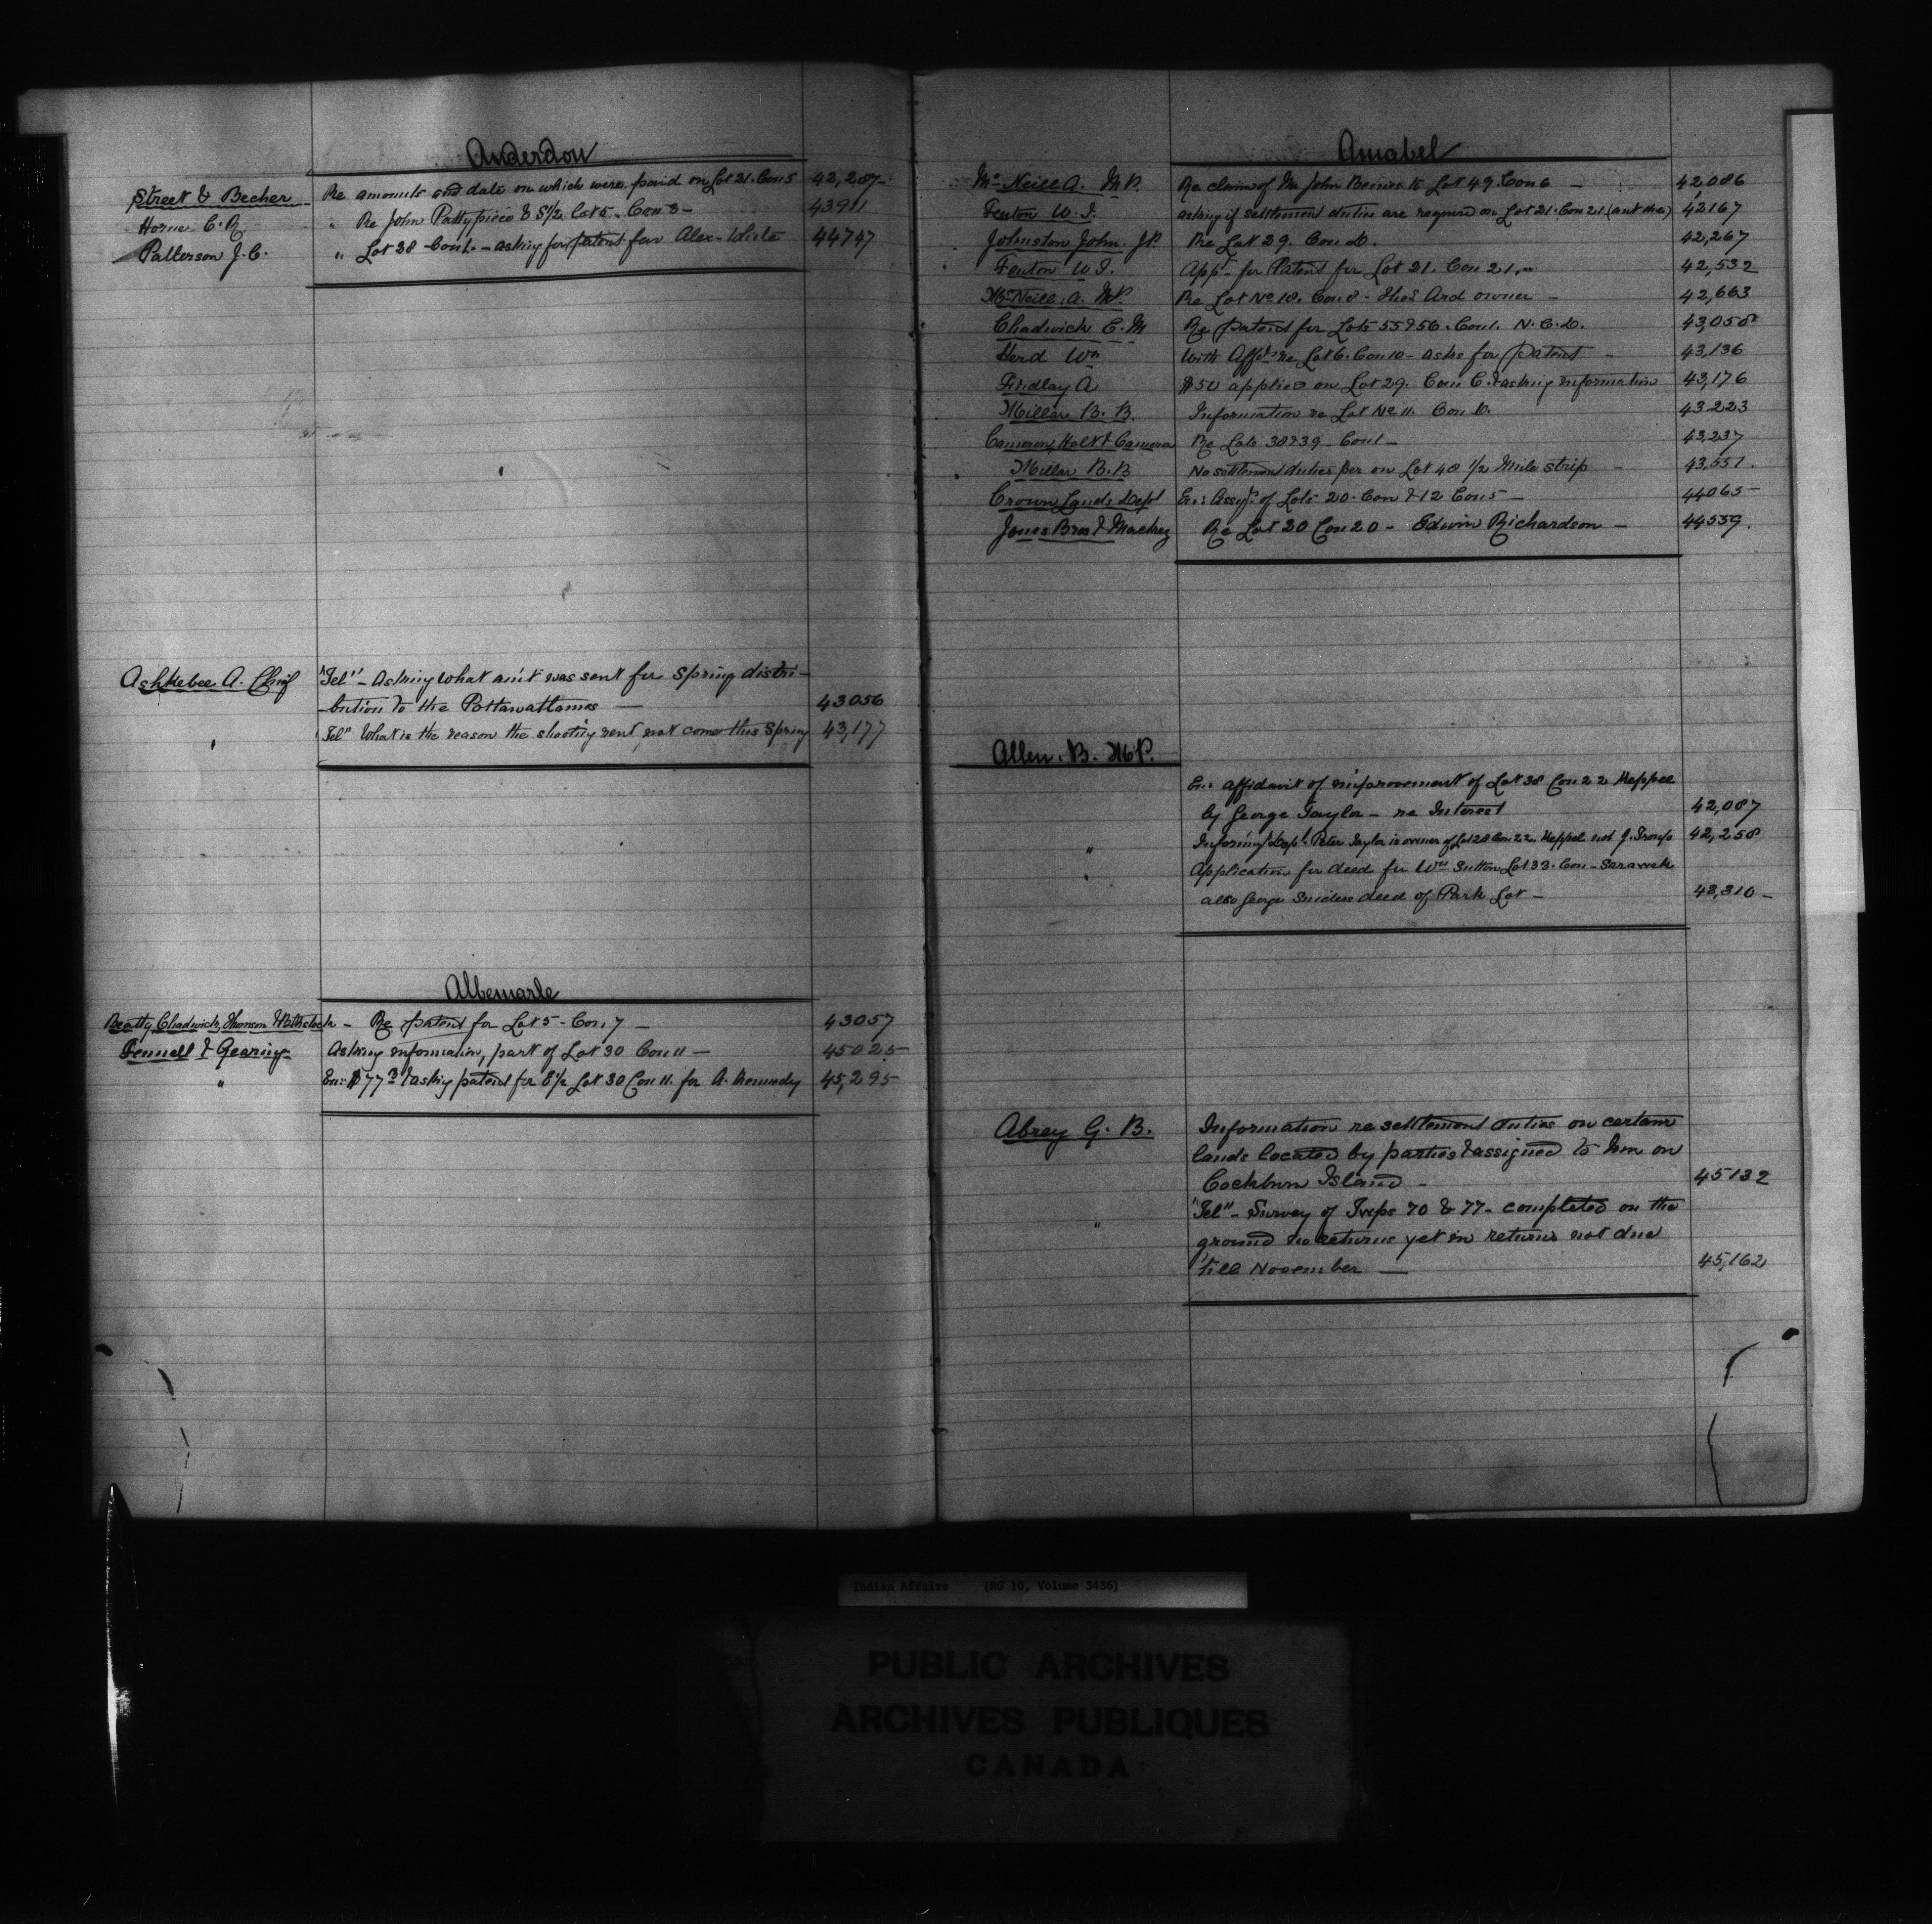 Anderdon
Street & Becher Re amounts and date on which were paid on Lot 21. Con 5 42,287
Horne C. R. " Re John Pattypiece & S 1/2 Lot 5 - Con 8 - 43911
Patterson J. C. " Lot 38 - Con 1. - asking for patent for Alex - White 44747
Ashkebee A. Chief "Tel" - Asking what am't was sent for Spring distri-
-bution to the Pottawattamas — 43056
"Tel" What is the reason the shooting rent not come this Spring 43,177
Albemarle
Beatty, Chadwick, Thomson & - Re patent for Lot 5 - Con 7 - 43057
Fennell & Gearing Asking information, part of Lot 30 Con 11 — 45025
" En: $77 & asking patent for E 1/2 Lot 30 Con 11. for A. Kennedy 45,295
Amabel
McNeill A. M.P. Re claim of Mr John to Lot 49. Con 6 — 42,086
Fenton W. J. asking if settlement duties are required on Lot 21. Con 21 42167
Johnston John. J.P. Re Lot 29. Con D. 42,267
Fenton W. J. App. for Patent for Lot 21. Con 21. 42,532
McNeill. A. M.P. Re Lot No 18. Con 8 - Thos Ard owner - 42,663
Chadwick E. M Re patent for Lots 55 & 56. Con 1. N. C. D. 43,058
Herd Wm With Affdt re Lot 6. Con 10 - asks for patent - 43,136
Findlay A $50 applied on Lot 29. Con C. & asking information 43,176
Millar B. B. Information re Lot No 11. Con D. 43223
Cameron, Holt & Cameron Re Lots 38 & 39 - Con 1 - 43,237
Millar B. B No settlement duties per on Lot 48 1/2 Mile strip - 43,551.
Crown Lands Dept En: Assgt of Lots 20. Con & 12 Con 5 — 44065
Jones Bros & Mackey Re Lot 20 Con 20 - Edwin Richardson - 44559.
Allen. B. M.P.
En: affidavit of improvement of Lot 38 Con 22 Keppel
by George Taylor - re Interest 42,087
" Informing Dept. Peter Taylor is owner of Lot 28 Con. 22. Keppel not J. 42,258
" Application for deed for Wm Sutton Lot 33. Con - Sarawak
also George deed of Park Lot - 43,310 -
Abrey G. B. Information re settlement duties on certain
lands located by parties & assigned to him on
Cockburn Island - 45132
" "Tel" - Survey of Twps 70 & 77 - completed on the
ground no returns yet in returns not due
'till November — 45,162
Indian Affairs (RG 10, Volume 3436)
PUBLIC ARCHIVES
ARCHIVES PUBLIQUES
CANADA